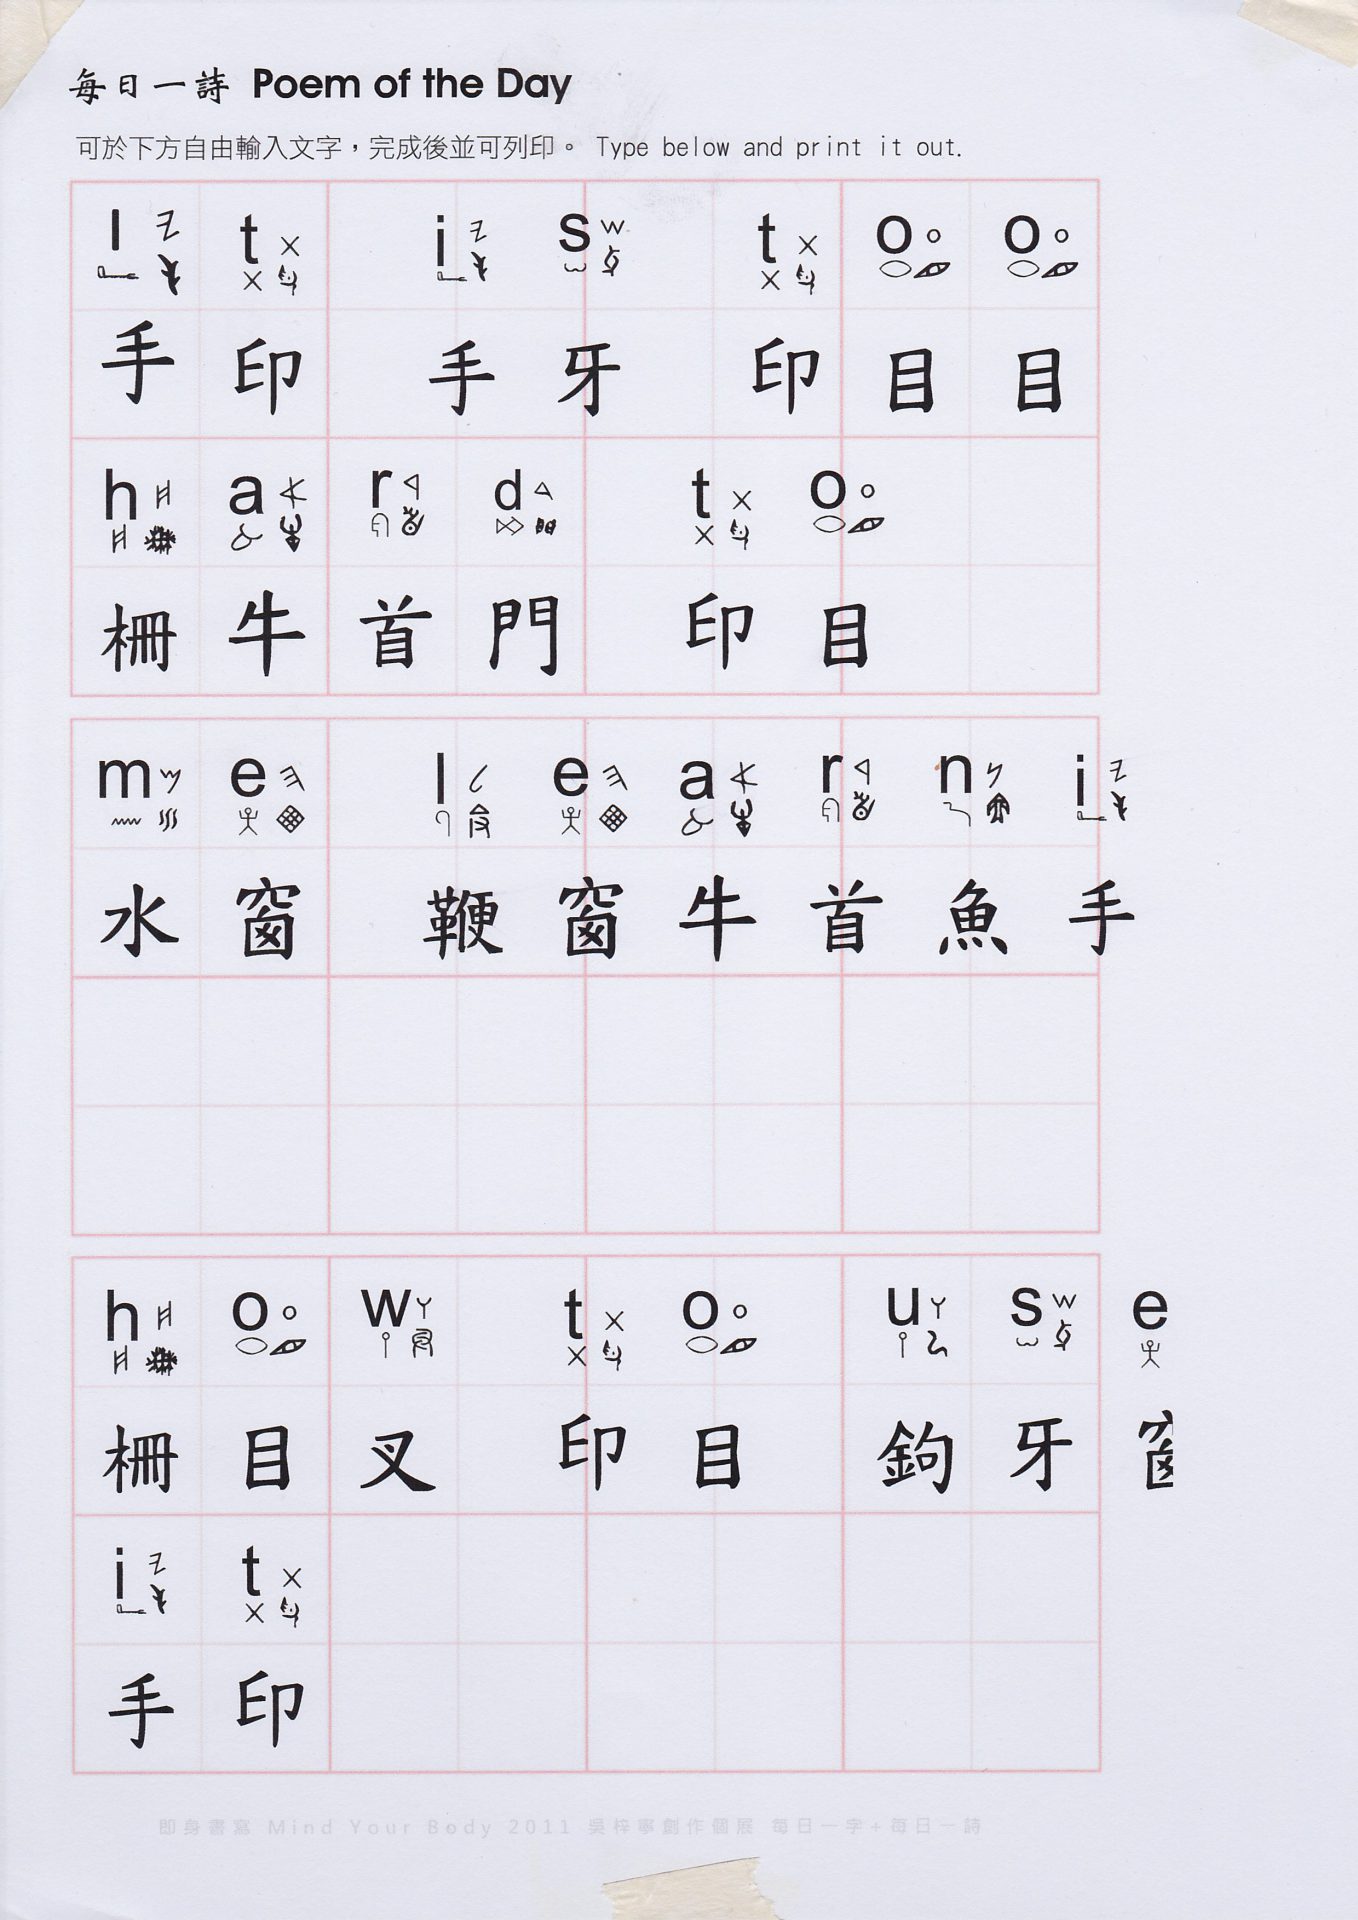 每日一詩 Poem of the Day
可於下方自由輸入文字，完成後並可列印。 Type below and print it out.
It is too
手印 手牙 印目目
hard to
柵牛首門 印目
me learni
水窗 鞭窗牛首魚手
how to use
柵目叉 印目 鉤牙窗
it
手印
即身書寫 Mind Your Body 2011 吳梓寧創作個展 每日一字+每日一詩